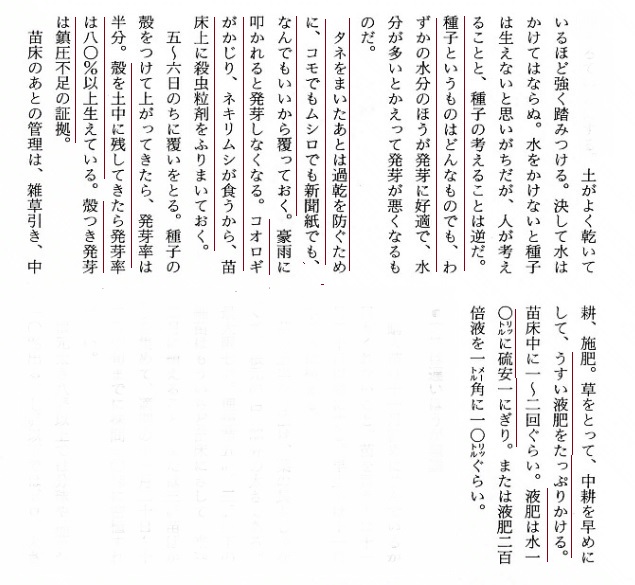 土がよく乾いて
いるほど強く踏みつける。決して水は
かけてはならぬ。水をかけないと種子
は生えないと思いがちだが、人が考え
ることと、種子の考えることは逆だ。
種子というものはどんなものでも、わ
ずかの水分のほうが発芽に好適で、水
分が多いとかえって発芽が悪くなるも
のだ。
タネをまいたあとは過乾を防ぐため
に、コモでもムシロでも新聞紙でも、
なんでもいいから覆っておく。豪雨に
叩かれると発芽しなくなる。コオロギ
がかじり、ネキリムシが食うから、苗
床上に殺虫粒剤をふりまいておく。
五〜六日のちに覆いをとる。種子の
殻をつけて上がってきたら、発芽率は
半分。殻を土中に残してきたら発芽率
は八〇%以上生えている。殻つき発芽
は鎮圧不足の証拠。
苗床のあとの管理は、雑草引き、中
耕、施肥。草をとって、中耕を早めに
して、うすい液肥をたっぷりかける。
苗床中に一〜二回ぐらい。液肥は水一
〇リットルに硫安一にぎり。または液肥二百
倍液を一メートル角に一〇リットルぐらい。